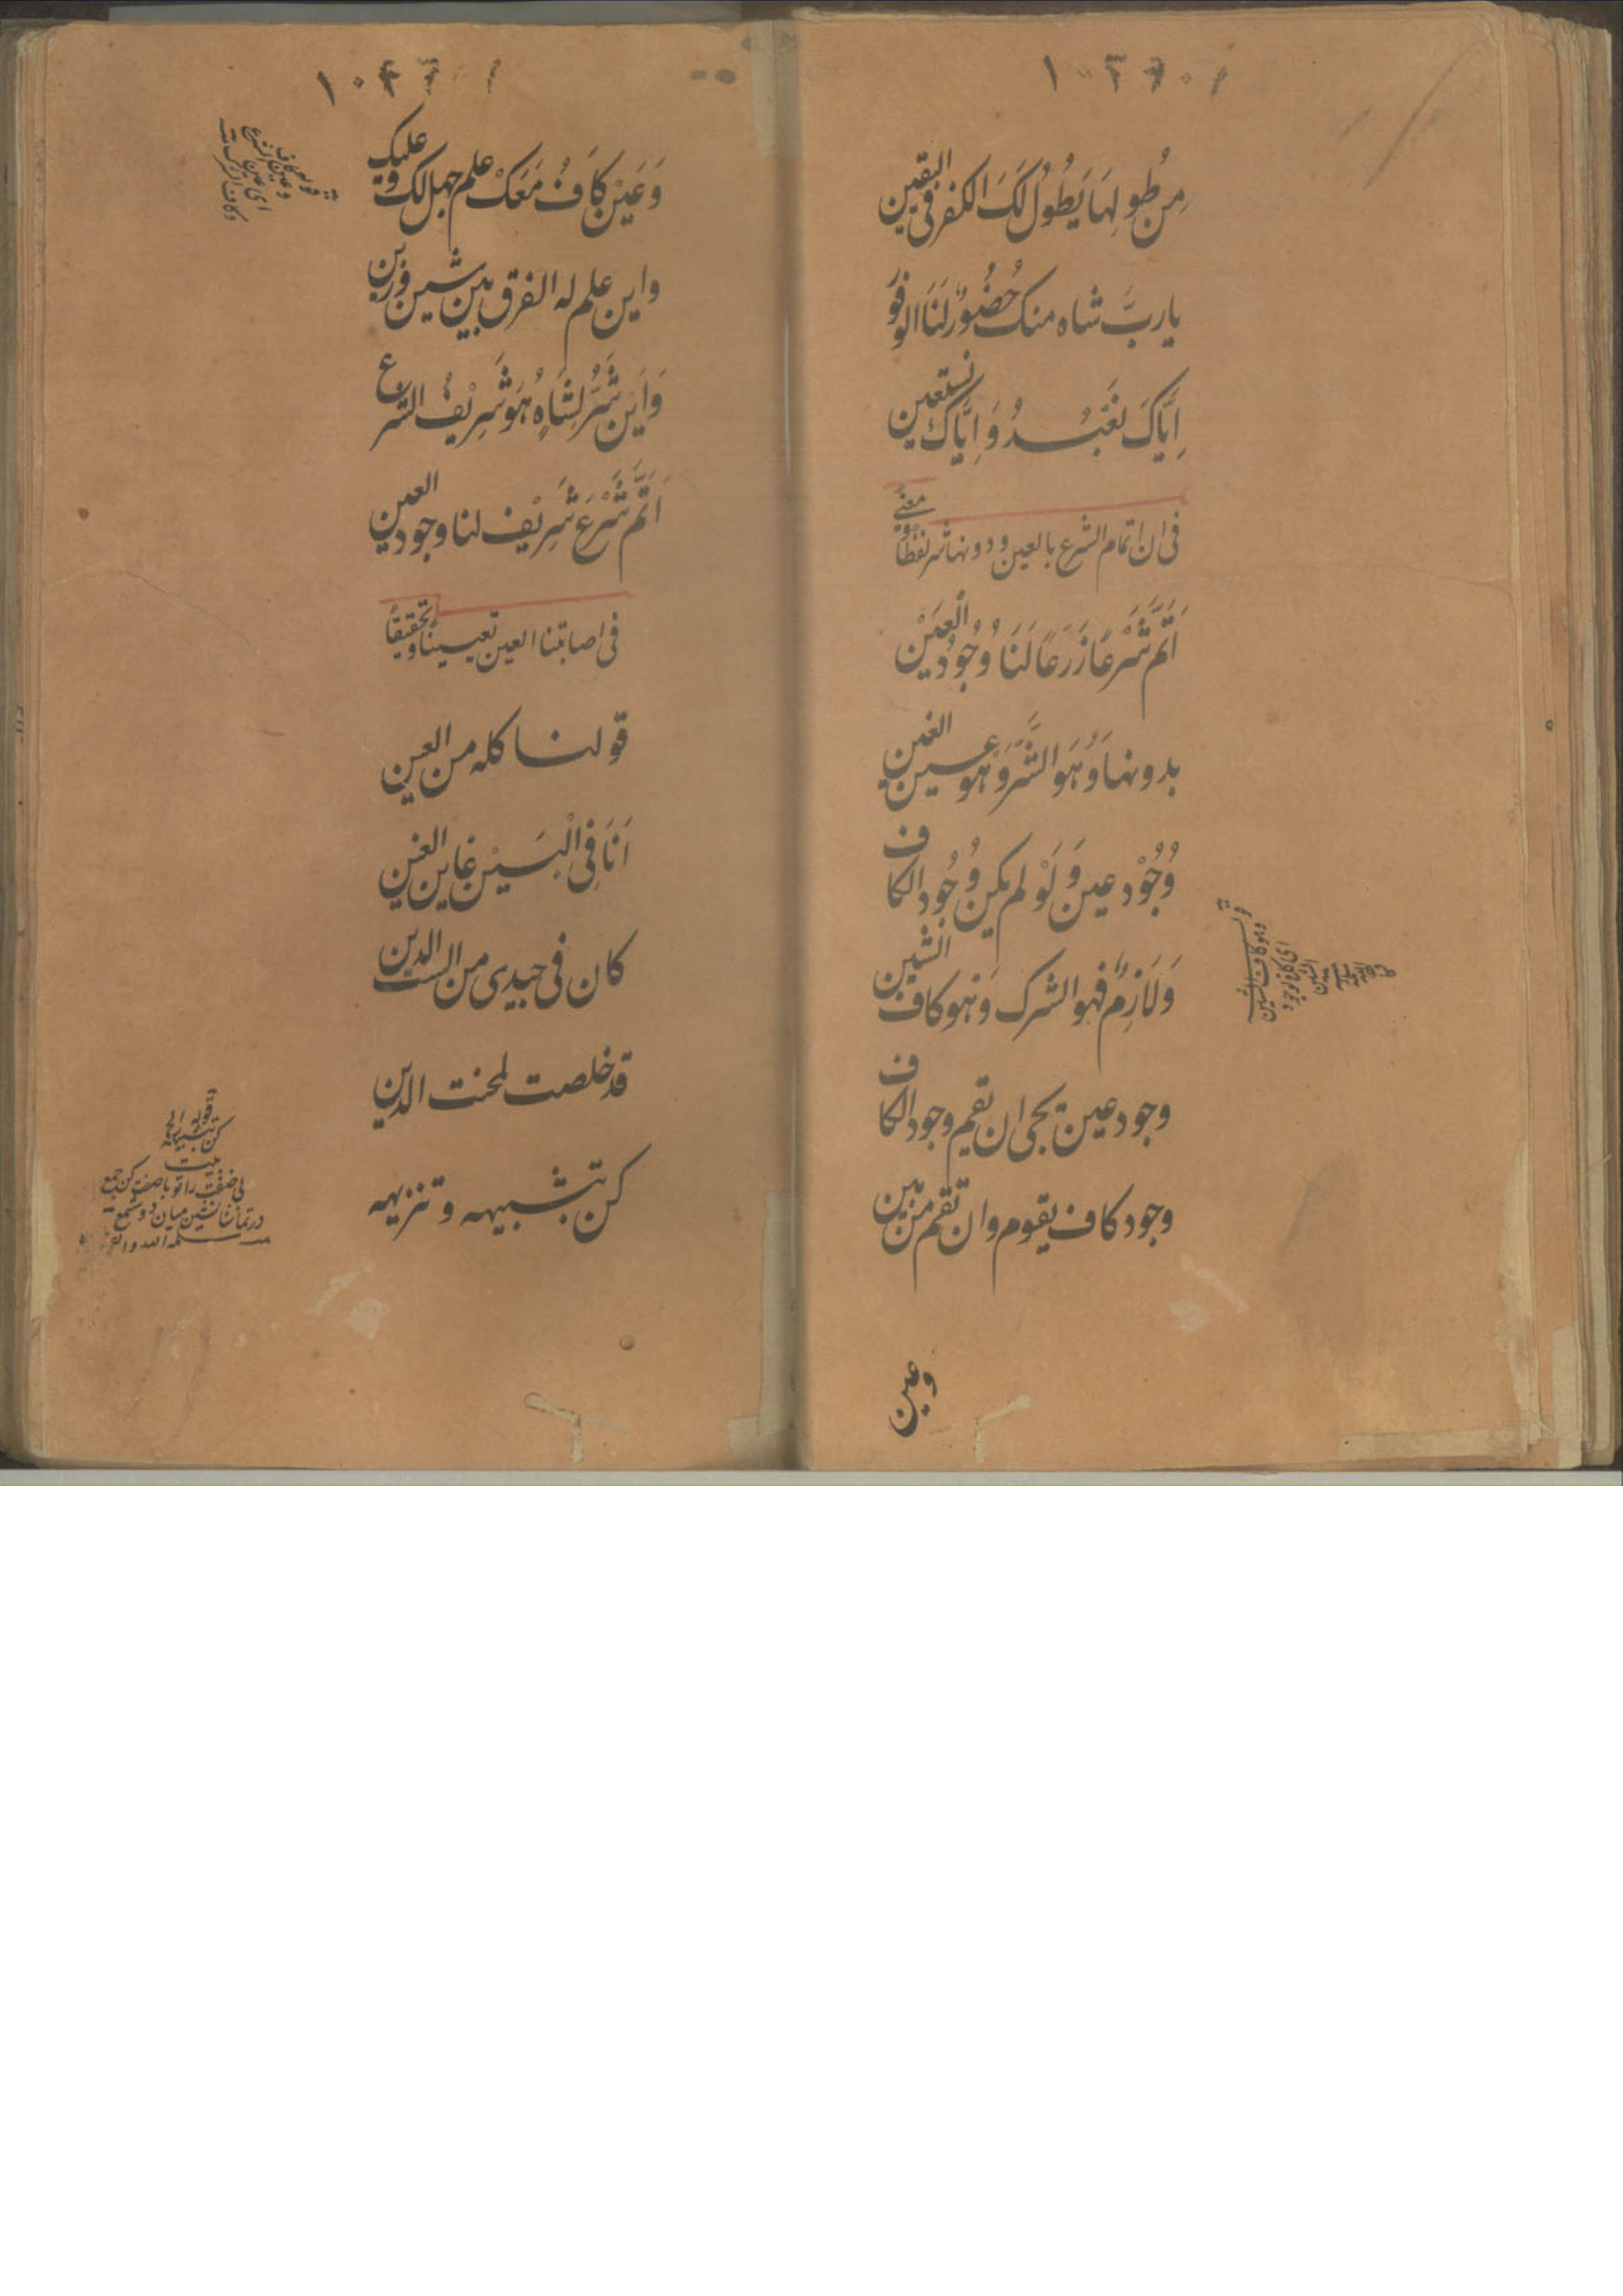 مِن طُولِهَا يَطُولُ لَكَ الكفر في اليقين
يا ربَّ شاه منك حُضُورٌ لَنَا الوفور
اِيَّاكَ نَعْبُدُ وَاِيَّاكَ نستعين
في ان اتمام الشرع بالعين ودونها شر لفظًا ومعنًى
اَتَمَّ شَرْعًا زَرَعًا لَنَا وُجُودُ الْعَيْن
بدونها وَهُوَ الشَّرُّ وَهُوَ عين الغين
وُجُوْد عين وَلَوْ لم يكن وُجُود الكاف
وَلَازِمٌ فهو الشرك وَهو كاف الشين
وجود عين يجى ان تقم وجود الكاف
وجود كاف يقوم وان تقم من بين
وعين
وَعَيْن كَافُ مَعَكْ علم جهل لك وعليك
واين علم له الفرق بين شين وزين
وَاَيْن شَرُّ لِشَاهٍ هُوَ شَرِيْفُ الشرع
اَتَمَّ شَرْعَ شَرِيْف لنا وجود العين
في اصابتنا العين تعيينًا وتحقيقًا
قولنا كله من العين
اَنَا فِى الْبَيْن غاين الغين
كان في جيدى من الست الدين
قد خلصت لمحنت الدين
كن بتشبيهه وتنزيهه
قوله
كن بتشبيهه الخ
بيت
بى صفت را تو با صفت كن جمع
در تماشا نشين ميان دو شمع